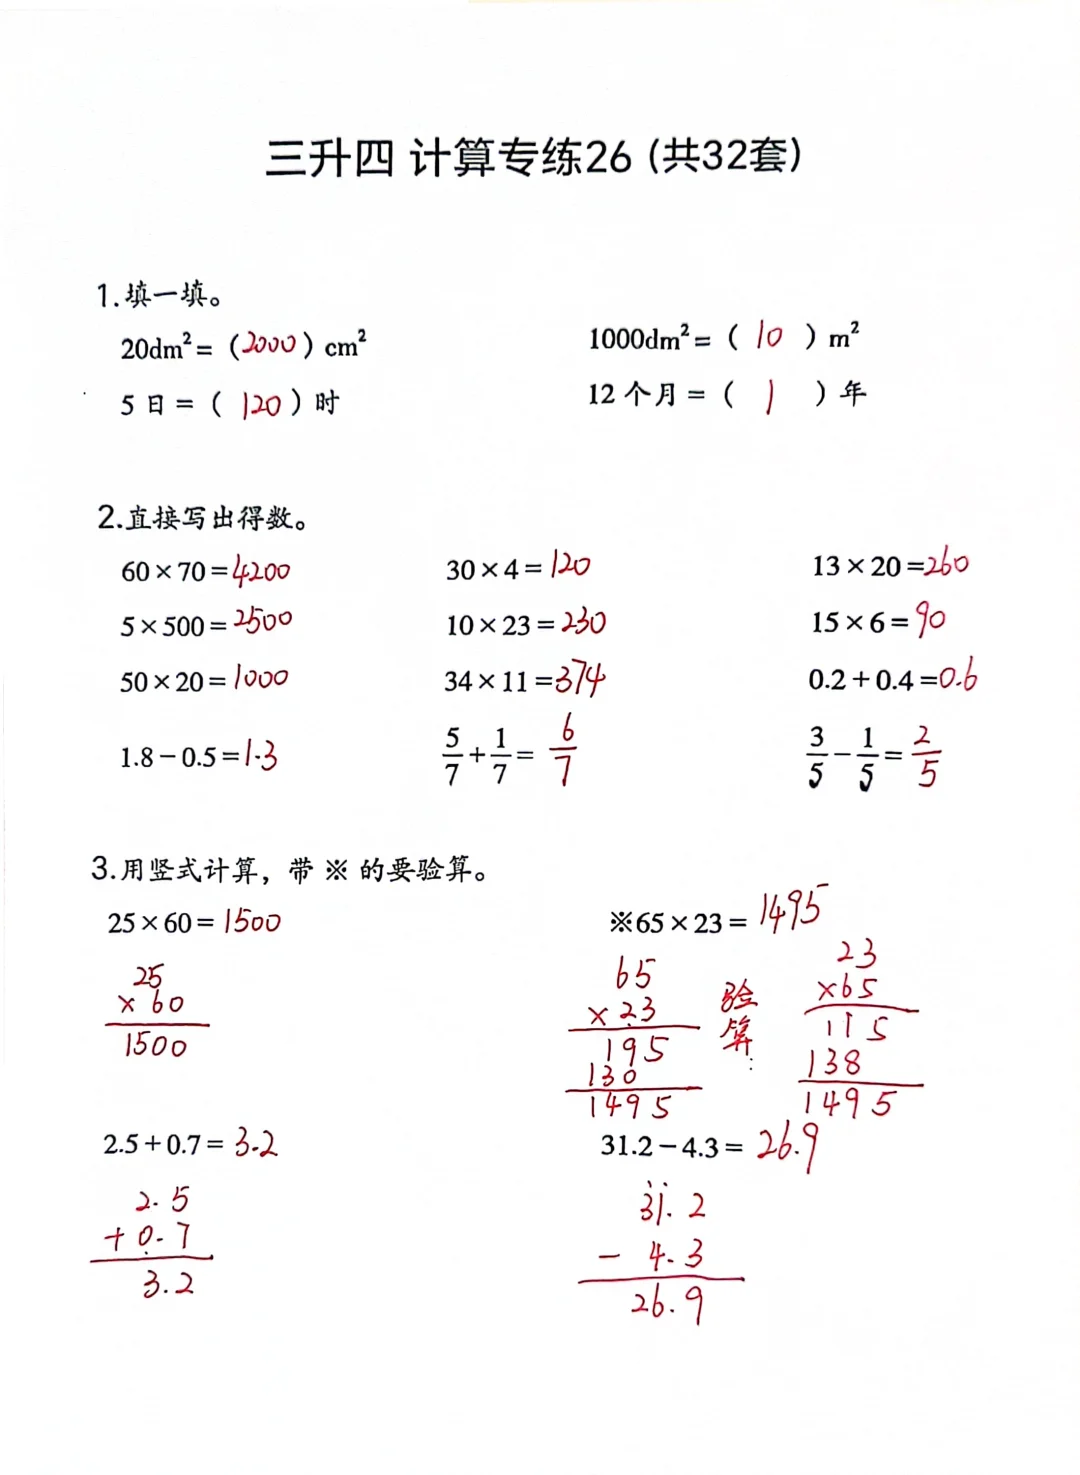 三升四 计算专练26 (共32套)
1.填一填。
20dm²=(2000)cm² 1000dm²=(10)m²
5日=(120)时 12个月=(1)年
2.直接写出得数。
60×70=4200 30×4=120 13×20=260
5×500=2500 10×23=230 15×6=90
50×20=1000 34×11=374 0.2+0.4=0.6
1.8-0.5=1.3 5/7+1/7=6/7 3/5-1/5=2/5
3.用竖式计算，带※的要验算。
25×60=1500 ※65×23=1495
25
×60
1500
65
×23
195
130
1495
验算:
23
×65
115
138
1495
2.5+0.7=3.2 31.2-4.3=26.9
2.5
+0.7
3.2
31.2
-4.3
26.9